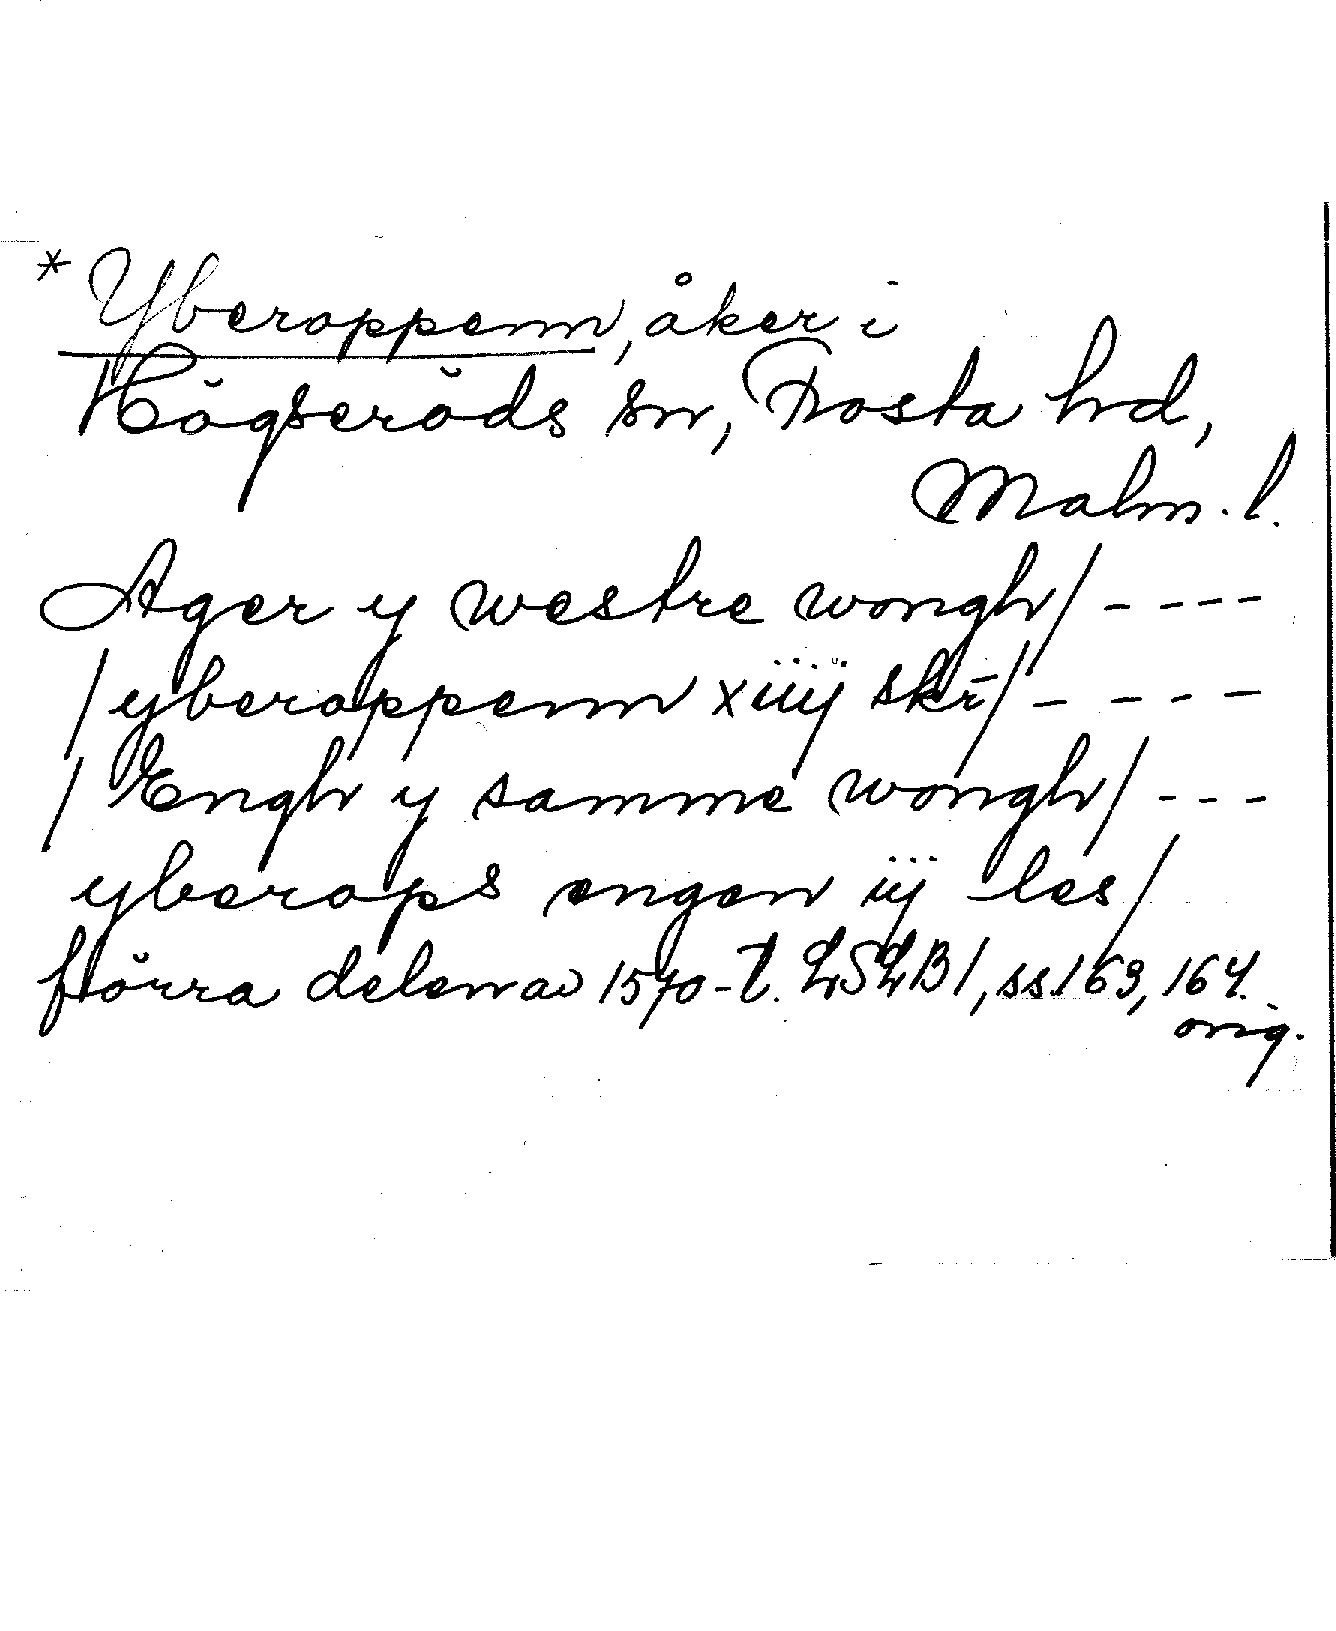 * Yberoppenn, åker i
Högseröds sn, Frosta hd,
Malm. l.
Ager y westre wongh/ - - - -
/ yberoppenn xiiij skr̄/ - - - -
/ Engh y samme wongh/ - - -
yberops engen iij les/
förra delen av 1570-t. LSLB1, ss. 163, 164.
orig.